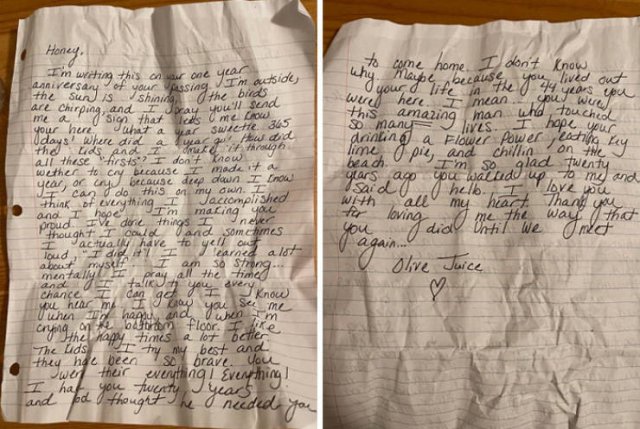 Honey,
I'm writing this on your one year
anniversary of your passing. I'm outside,
the sun is shining, the birds
are chirping and I pray you'll send
me a sign that lets me know
your here. What a year sweetie. 365
days! Where did a year go? How did
the kids and I make it through
all these "firsts"? I don't know
wether to cry because I made it a
year or cry because deep down I know
I can do this on my own. I
think of everything I accomplished
and I hope I'm making you
proud. I've done things I never
thought I could and sometimes
I actually have to yell out
loud "I did it"! I learned a lot
about myself. I am so strong...
mentally! I pray all the time
and I talk to you every
chance I can get. I know
you hear me. I know you see me
when I'm happy and when I'm
crying on the bathroom floor. I like
the happy times a lot better.
The kids. I try my best and
they have been so brave. You
were their everything! Everything!
I had you twenty years
and God thought he needed you
to come home. I don't know
why. Maybe because you lived out
your life in the 44 years you
were here. I mean.. you were
this amazing man who touched
so many lives. I hope your
drinking a Flower Power, eating Key
lime pie, and chillin on the
beach. I'm so glad twenty
years ago you walked up to me and
said hello. I love you
with all my heart. Thank you
for loving me the way that
you did. Until we meet
again...
Olive Juice